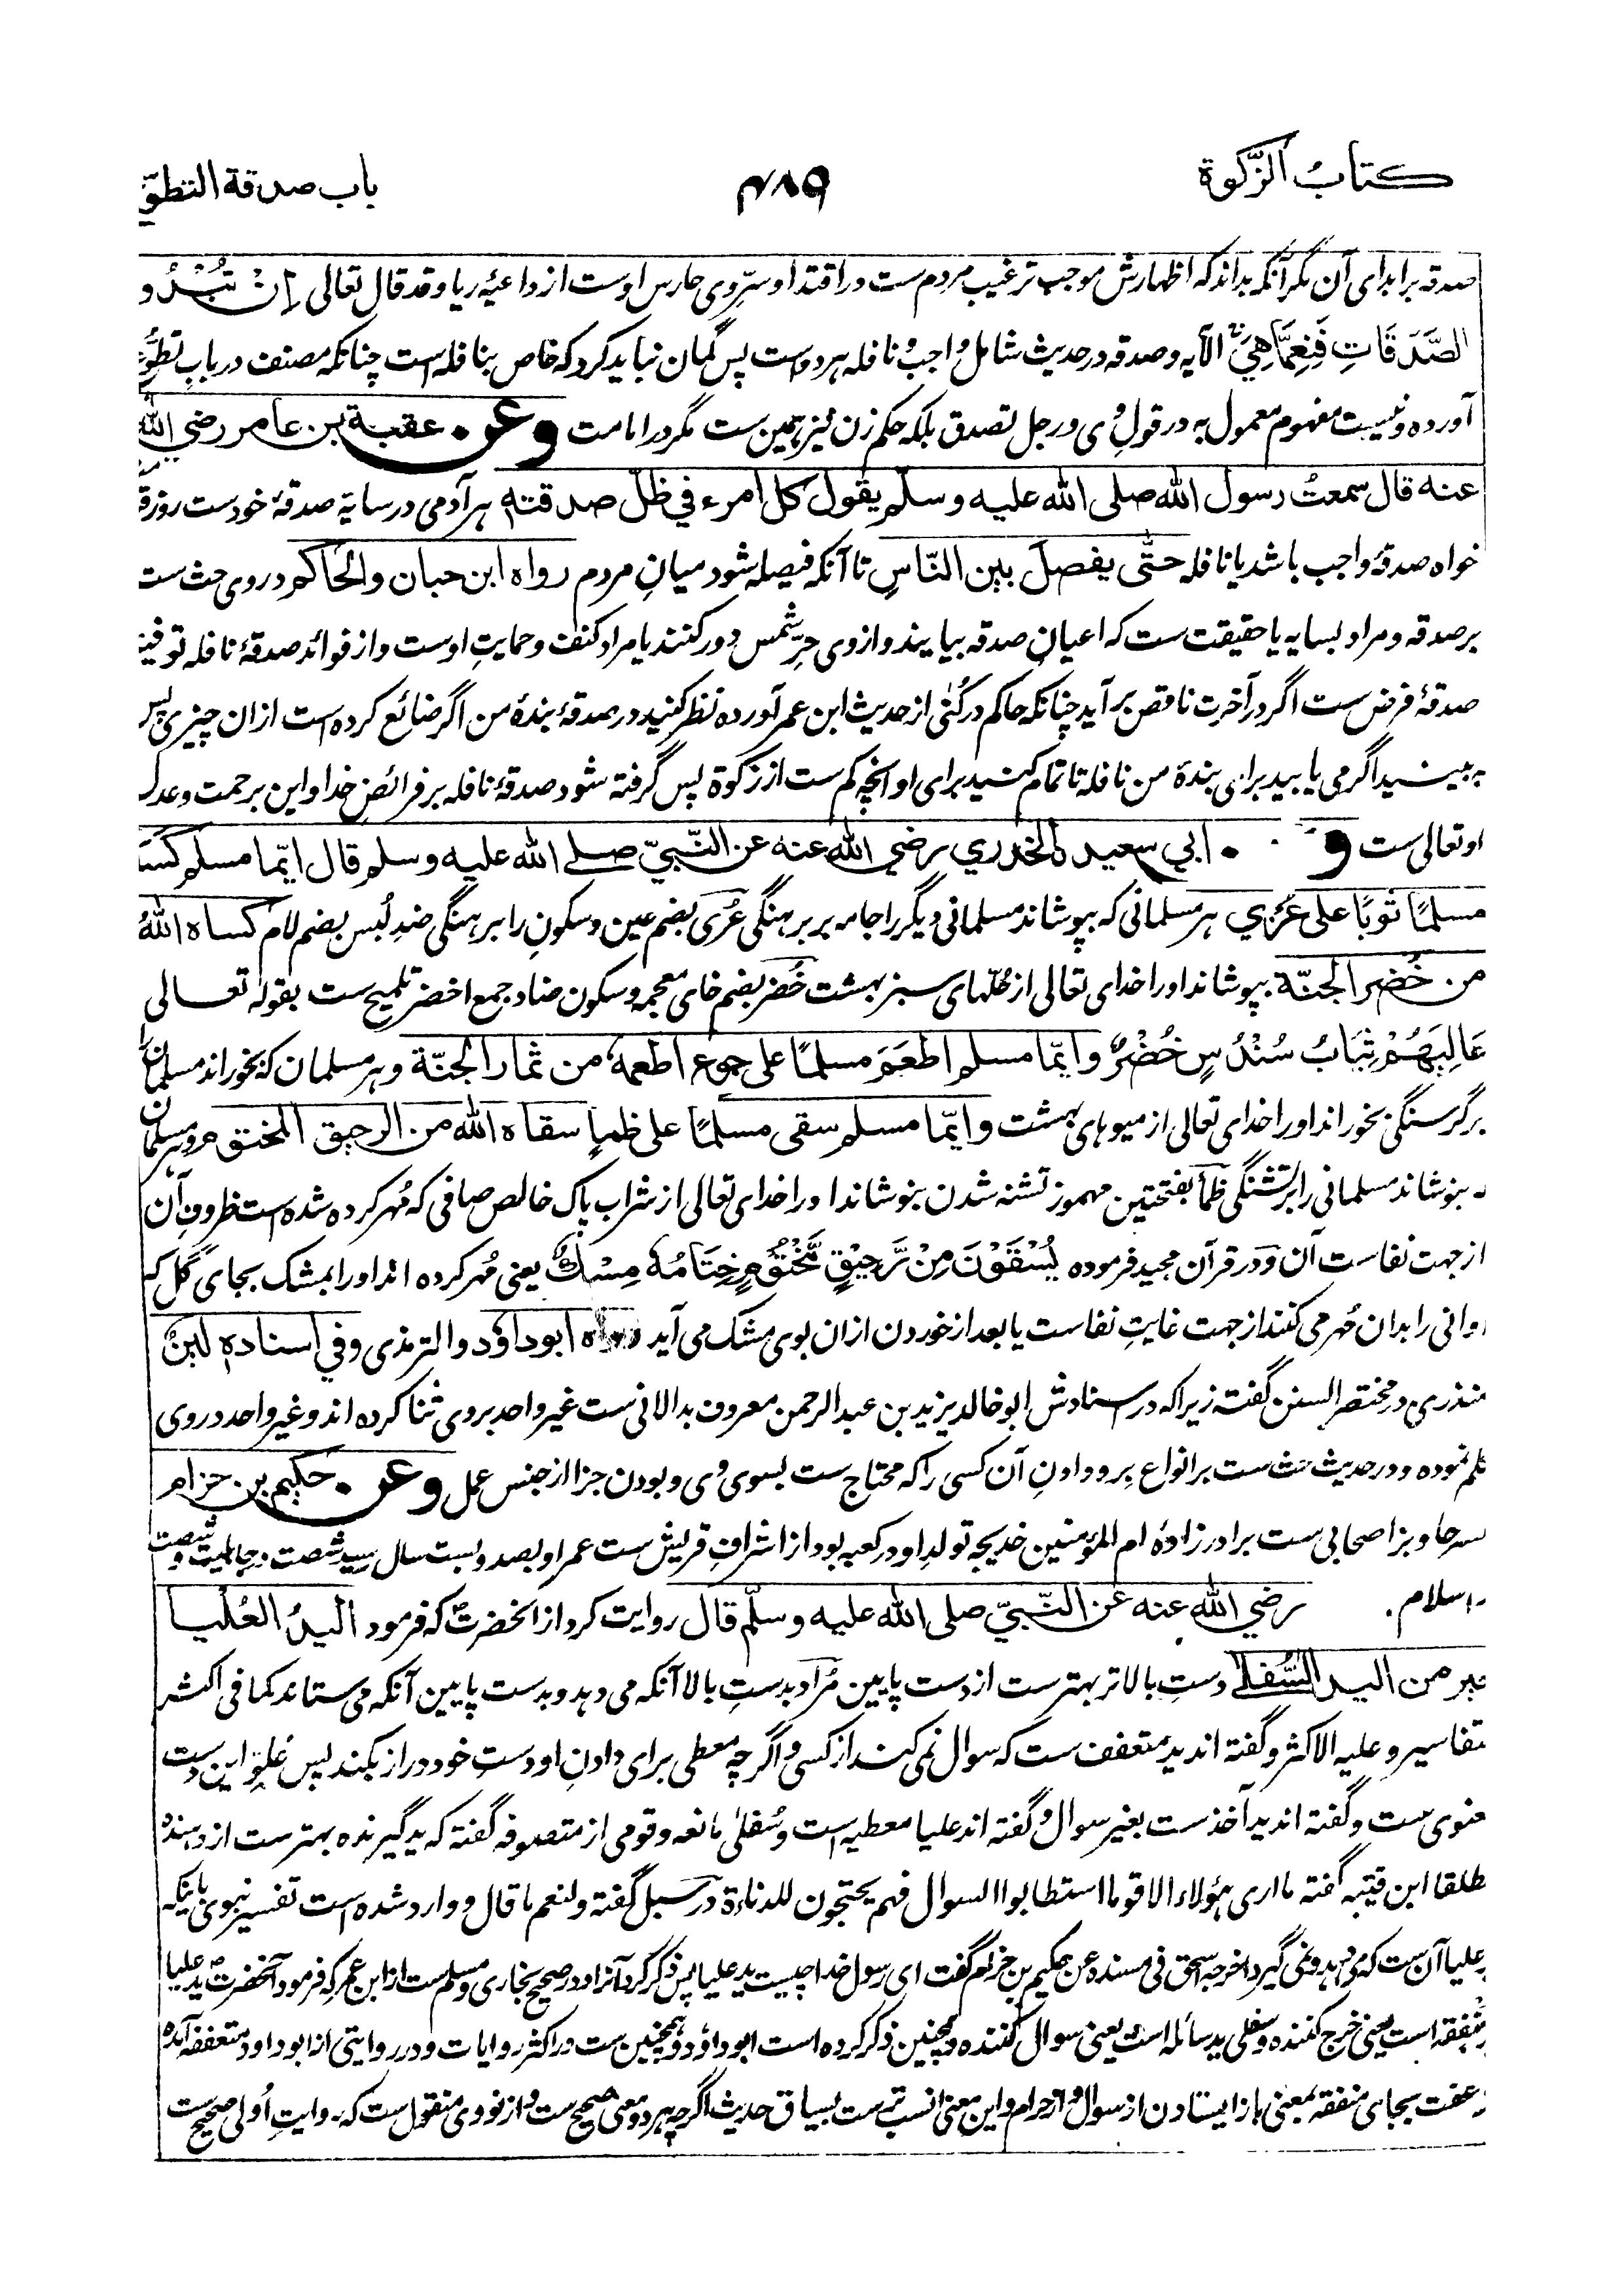 كتابُ الزَّكوة
۴۸۹
باب صدقة التطوّ
صدقہ برابدای آن مگر آنکہ بداند کہ اظہارش موجب ترغیب مردم ست در اقتدا و سرّ وی حارس اوست از داعیۂ ریا و قد قال تعالی اِنْ تُبْدُو
الصَّدَقَاتِ فَنِعِمَّا هِيَ الآیہ و صدقہ در حدیث شامل واجب و نافلہ ہر دوست پس گمان نباید کرد کہ خاص بنافلہ است چنانکہ مصنف در باب تطوّع
آوردہ و نیست مفہوم معمول بہ در قول وی ورجل تصدق بلکہ حکم زن نیز ہمین ست مگر در امامت وعن عقبة بن عامر رضي الله
عنه قال سمعتُ رسول الله صلى الله عليه وسلّم يقول كل امرء في ظلّ صدقته ہر آدمی در سایۂ صدقۂ خودست روز ق
خواہ صدقۂ واجب باشد یا نافلہ حتّى يفصل بين النّاسِ تا آنکہ فیصلہ شود میانِ مردم رواه ابن حبان والحاكم و دروی حث ست
بر صدقہ و مراد بسایہ یا حقیقت ست کہ اعیان صدقہ بیایند و از وی حرِّ شمس دور کنند یا مراد کنف و حمایتِ اوست و از فوائد صدقۂ نافلہ توفیۂ
صدقۂ فرض ست اگر در آخرت ناقص برآید چنانکہ حاکم در کُنٰی از حدیث ابن عمر آوردہ نظر کنید در صدقۂ بندۂ من اگر ضائع کردہ است ازان چیزی پس
ببینید اگر می یابید برای بندۂ من نافلہ تا تمام کنید برای او انچہ کم ست از زکوۃ پس گرفتہ شود صدقۂ نافلہ بر فرائض خدا و این برحمت و عدل
او تعالی ست و ابي سعيد الخدري رضي الله عنه عن النّبيّ صلے الله عليه وسلم قال ايّما مسلم كسَا
مسلمًا ثوبًا على عُرْي ہر مسلمانی کہ بپوشاند مسلمانی دیگر را جامہ بر برہنگی عُری بضم عین و سکونِ را برہنگی ضدِ لُبس بضم لام كساه اللهُ
من خُضر الجنّة بپوشاند او را خدای تعالی از حُلّہای سبز بہشت خُضر بضم خای معجمہ و سکون ضاد جمع اخضر تلمیح ست بقولہ تعالی
عَالِيَهُمْ ثِيَابُ سُنْدُسٍ خُضْرٌ وايّما مسلم اطعَمَ مسلمًا على جوع اطعمه من ثمار الجنّة و ہر مسلمان کہ بخوراند مسلمان را
بر گرسنگی بخوراند او را خدای تعالی از میوہای بہشت وايّما مسلم سقى مسلمًا على ظماءٍ سقاه الله من الرحيق المختوم و ہر مسلمان
کہ بنوشاند مسلمانی را بر تشنگی ظمأ بفتحتین مہموز تشنہ شدن بنوشاند او را خدای تعالی از شراب پاک خالص صافی کہ مُہر کردہ شدہ است ظروفِ آن
از جہت نفاست آن و در قرآن مجید فرمودہ يُسْقَوْنَ مِنْ رَّحِيْقٍ مَّخْتُوْمٍ خِتَامُهٗ مِسْكٌ یعنی مُہر کردہ اند او را بمشک بجای گل کہ
اوانی را بدان مُہر می کنند از جہت غایتِ نفاست یا بعد از خوردن ازان بوی مشک می آید رواه ابو داؤد والترمذی وفي اسناده لينٌ
منذری در مختصر السنن گفتہ زیرا کہ در اسنادش ابو خالد یزید بن عبد الرحمن معروف بدالانی ست غیر واحد بروی ثنا کردہ اند و غیر واحد دروی
تکلم نمودہ و در حدیث حث ست بر انواع بر و دادنِ آن کسی را کہ محتاج ست بسوی وی و بودن جزا از جنس عمل وعن حكيم بن حزام
بکسر حا و بزا صحابی ست برادر زادۂ ام المؤمنین خدیجہ تولد او در کعبہ بود از اشرافِ قریش ست عمر او بصد و بست سال رسید شصت در جاہلیت و شصت
در اسلام. رضي الله عنه عن النّبيّ صلى الله عليه وسلّم قال روایت کرد از آنحضرتؐ کہ فرمود اليدُ العُليا
خير من اليد السُّفلے دستِ بالاتر بہترست از دست پایین مُراد بدستِ بالا آنکہ می دہد و بدست پایین آنکہ می ستاند کما فی اکثر
تفاسیر و علیہ الاکثر و گفتہ اند ید متعفف ست کہ سوال نمی کند از کسی و اگر چہ معطی برای دادنِ او دستِ خود دراز بکند پس عُلوِّ این دست
معنوی ست و گفتہ اند ید آخذ ست بغیر سوال و گفتہ اند علیا معطیہ است و سُفلیٰ مانعہ و قومی از متصوفہ گفتہ کہ ید گیرندہ بہترست از دہندہ
مطلقا ابن قتیبہ گفتہ ما اری ہؤلاء الا قوما استطابوا السوال فہم یحتجون للدناءة در سبل گفتہ ولنعم ما قال و وارد شدہ است تفسیر نبوی باینکہ
ید علیا آن ست کہ می دہد و نمی گیرد اخرجہ اسحق فی مسندہ عن حکیم بن حزام گفت ای رسول خدا چیست ید علیا پس ذکر کرد آنرا و در صحیح بخاری و مسلم ست از ابن عمر کہ فرمود آنحضرتؐ ید علیا
منفقہ است یعنی خرج کنندہ و سفلی ید سائلہ است یعنی سوال کنندہ و ہمچنین ذکر کردہ است ابو داؤد و ہمچنین ست در اکثر روایات و در روایتی از ابو داود متعففہ آمدہ
از عفت بجای منفقہ بمعنی باز ایستادن از سوال و از حرام و این معنی انسب ترست بسیاق حدیث اگر چہ ہر دو معنی صحیح ست و از نووی منقول ست کہ روایتِ اُولی صحیح ست